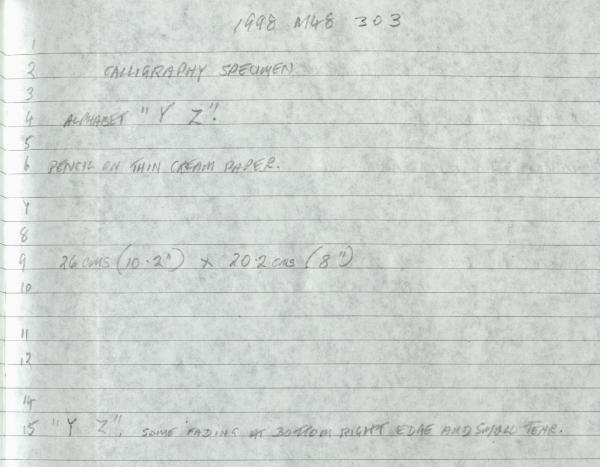 1998 M48 303
1
2 CALLIGRAPHY SPECIMEN
3
4 ALPHABET "Y Z".
5
6 PENCIL ON THIN CREAM PAPER.
7
8
9 26 cms (10.2") x 20.2 cms (8")
10
11
12
14
15 "Y Z". SOME FADING AT BOTTOM RIGHT EDGE AND SMALL TEAR.